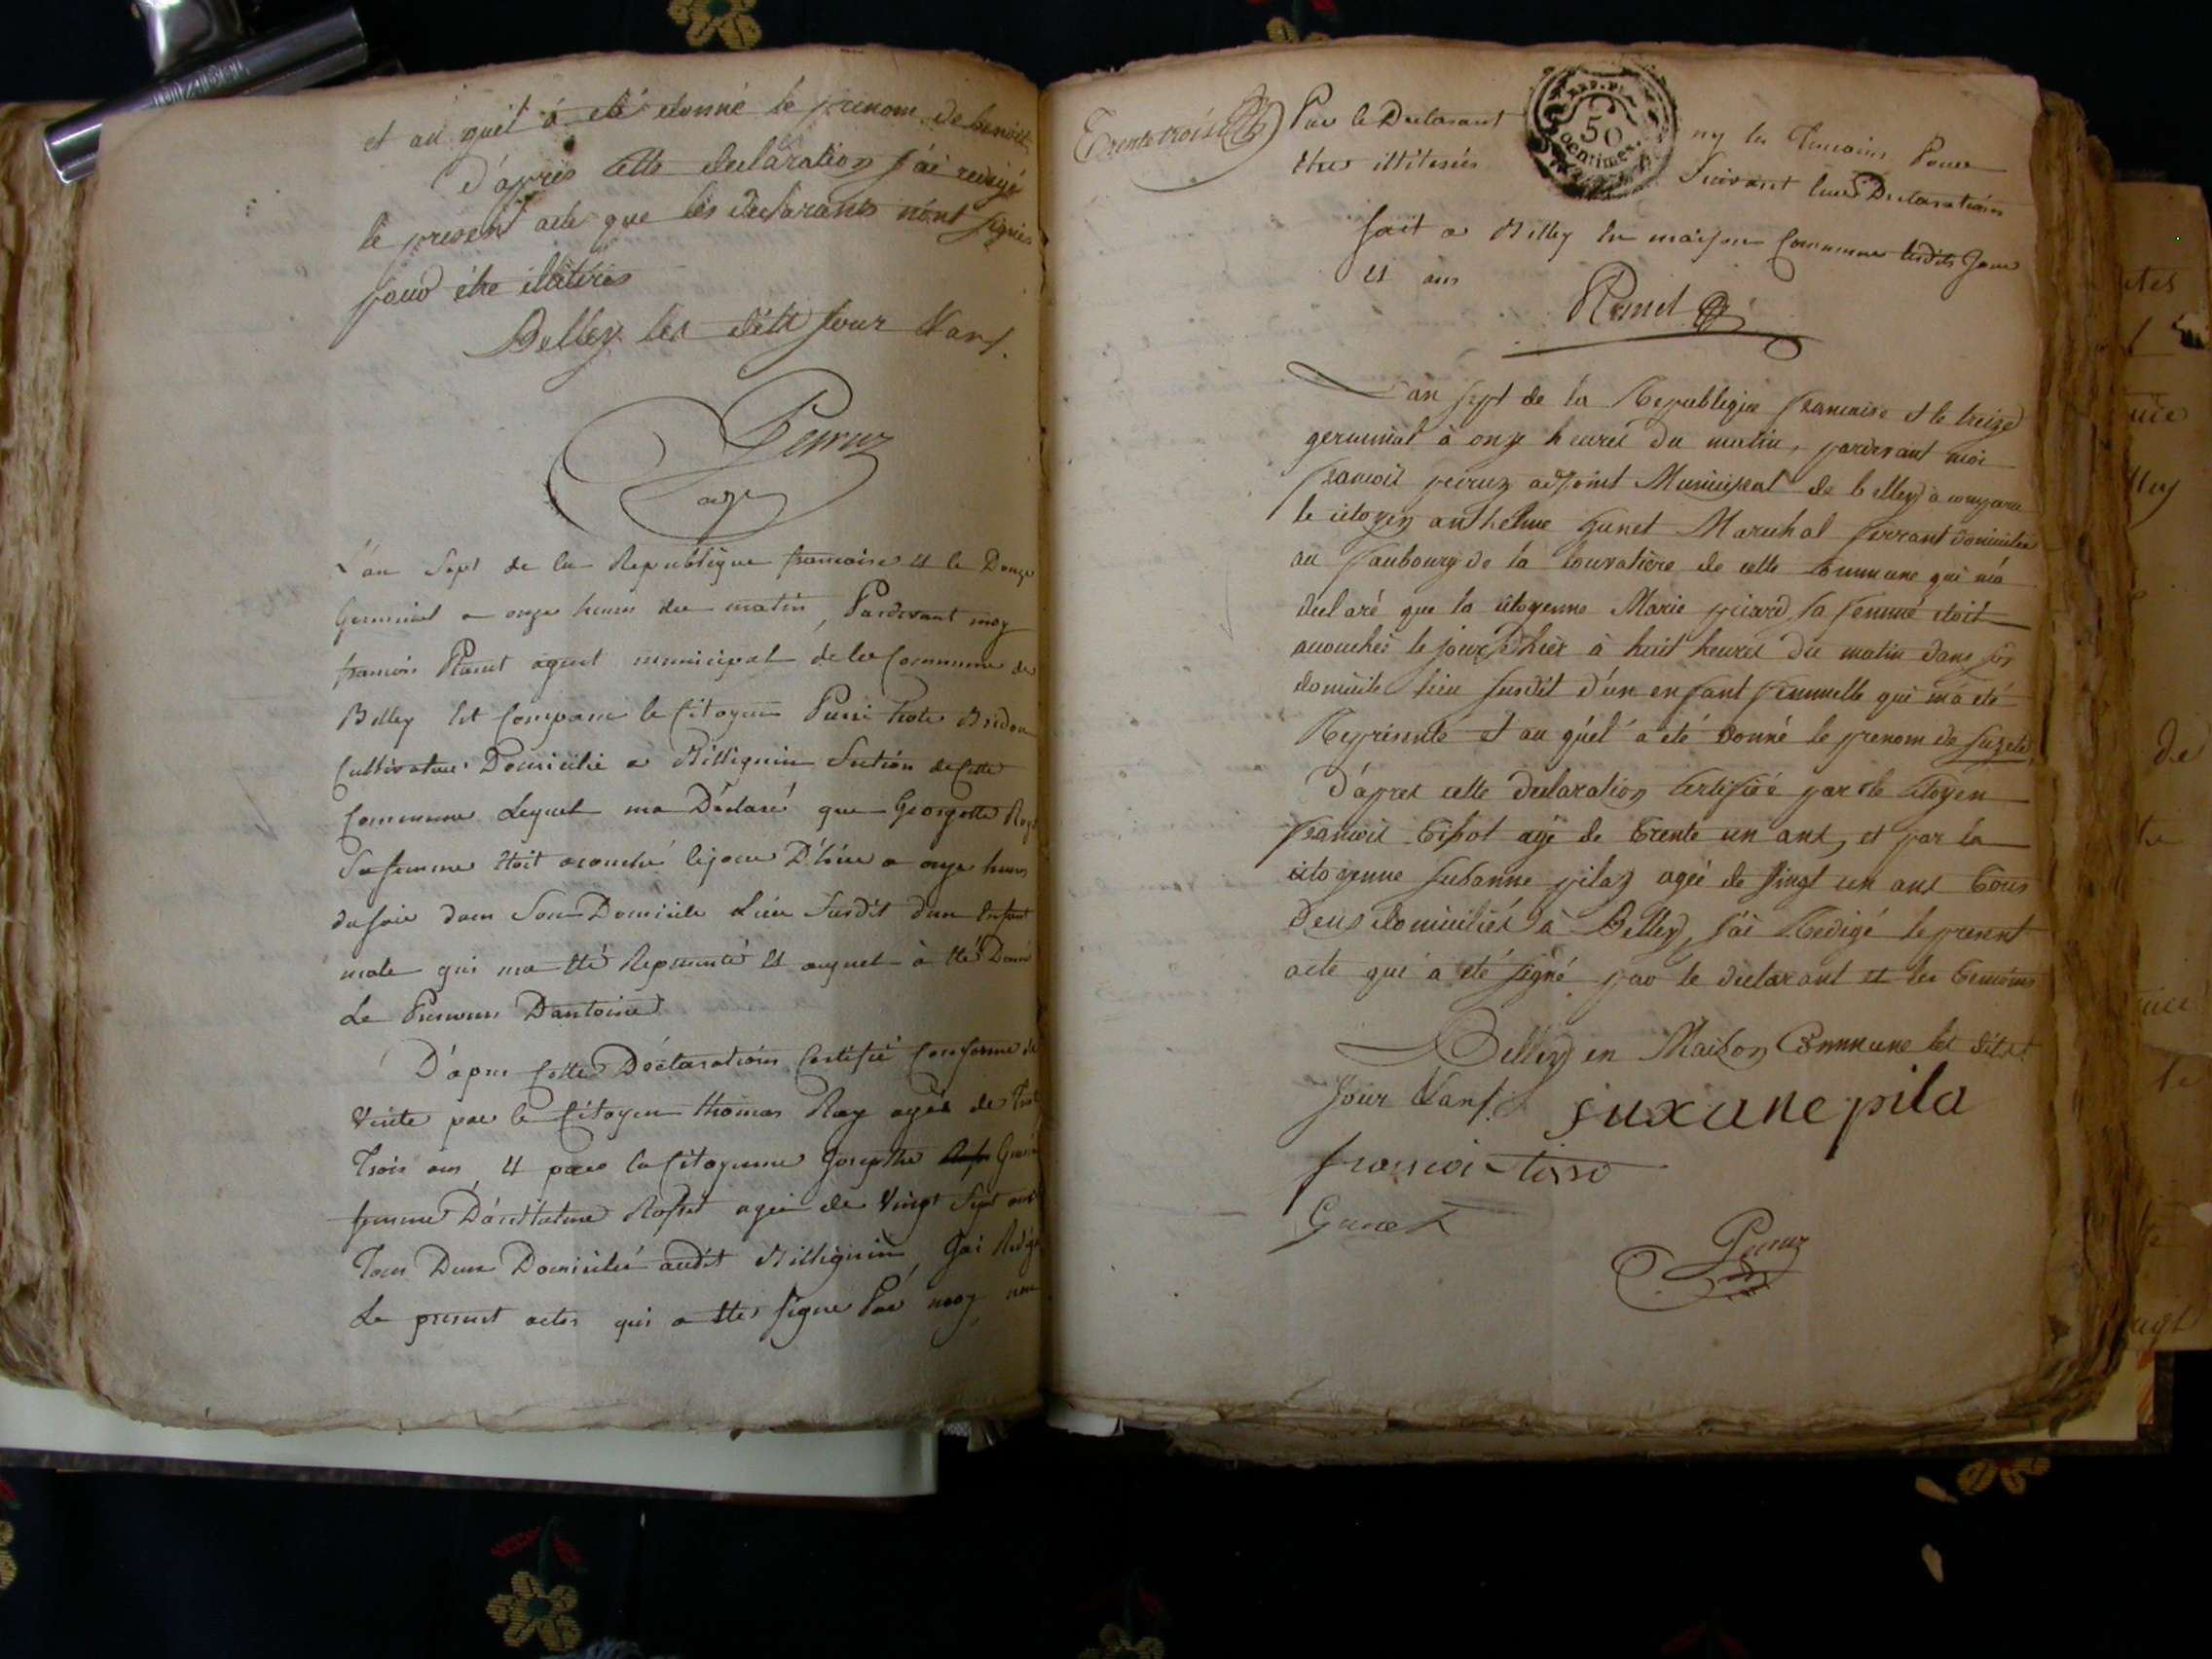 et au quel á été donné le prenom de benoit
D'aprés cette declaration J'ai redigé
le present acte que les declarants n'ont signés
pour étre illitérés
Belley les dits Jour & an
Peruz
agt
L'an Sept de la Republique francoise et le Douze
Germinal a onze heures du matin, Pardevant moy
francois agent municipal de la Commune de
Belley Est Comparu le Citoyen
Cultivateur Domicilié a Billignin Section de Cette
Commune Lequel ma Déclaré que Georgette Roy
Sa femme Etoit acouché lejour D'hier a onze heures
du soir dans Son Domicile Lieu Susdit d'un Enfant
male qui ma été Representé Et auquel à été Donné
Le Prenom D'antoine
D'àpres Cette Déclaration Certifié Conforme à la
Verité par le Citoyen thomas Roy agé de
Trois ans, Et par la Citoyenne Josepthe
femme D'anthelme Rosset agée de Vingt Sept ans
Tous Deux Domicilié audit Billignin, J'ai Redigé
Le present acte qui a été Signé Par moy, non
Trente trois
Par le Declarant ny les Temoins Pour
Etre illiterés Suivant leurs Declarations
REP. FRA.
50
centimes.
fait a Belley En maison Commune lesdits Jour
Et ans
L'an sept de la Republique francaise et le treize
germinal à onze heures du matin, pardevant moi
francois peruz adjoint Municipal de belley a comparu
le citoyen anthelme gunet Marechal ferrant domicilié
au faubourg de la couratiere de cette commune qui m'a
declaré que la citoyenne Marie picard sa femme étoit
acouchée le jour d'hier à huit heures du matin dans son
domicile lieu susdit d'un enfant femmelle qui m'a été
Represente et au quel a été donné le prenom de suzete
D'apres cette declaration certifiée par le citoyen
francois tissot agé de trente un ans, et par la
citoyenne susanne pilaz agée de vingt un ans tous
deux domiciliés à Belley, j'ai Redigé le present
acte qui a été signé par le declarant et les temoins
Belley en Maison Commune les dits
Jour & an
suxane pila
francoi tisso
Gunet
Peruz